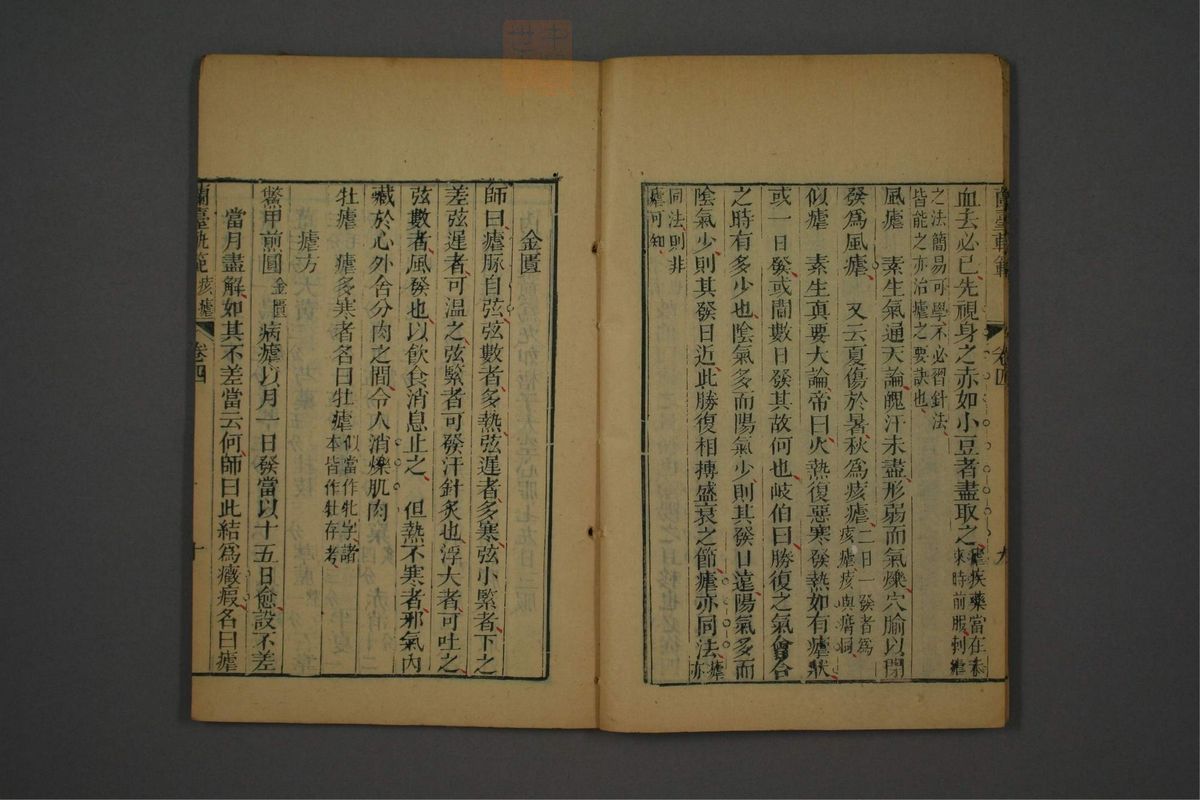 蘭臺軌範 卷四 九
血去必已先視身之赤如小豆者盡取之瘧疾藥當在未來時前服刺瘧
之法簡易可學不必習針法皆能之亦治瘧之要訣也
風瘧 素生氣通天論魄汗未盡形弱而氣爍穴腧以閉
發爲風瘧 又云夏傷於暑秋爲痎瘧二日一發者爲痎瘧痎與痟同
似瘧 素至眞要大論帝曰火熱復惡寒發熱如有瘧狀
或一日發或間數日發其故何也岐伯曰勝復之氣會合
之時有多少也陰氣多而陽氣少則其發日遠陽氣多而
陰氣少則其發日近此勝復相搏盛衰之節瘧亦同法瘧亦
同法則非瘧可知
金匱
師曰瘧脉自弦弦數者多熱弦遲者多寒弦小緊者下之
差弦遲者可温之弦緊者可發汗針炙也浮大者可吐之
弦數者風發也以飲食消息止之 但熱不寒者邪氣內
藏於心外舍分肉之間令人消爍肌肉
牡瘧 瘧多寒者名曰牡瘧似當作牝字諸本皆作牡存考
瘧方
鱉甲煎圓金匱 病瘧以月一日發當以十五日愈設不差
當月盡解如其不差當云何師曰此結爲癥瘕名曰瘧
蘭臺軌範 痎瘧 卷四 十